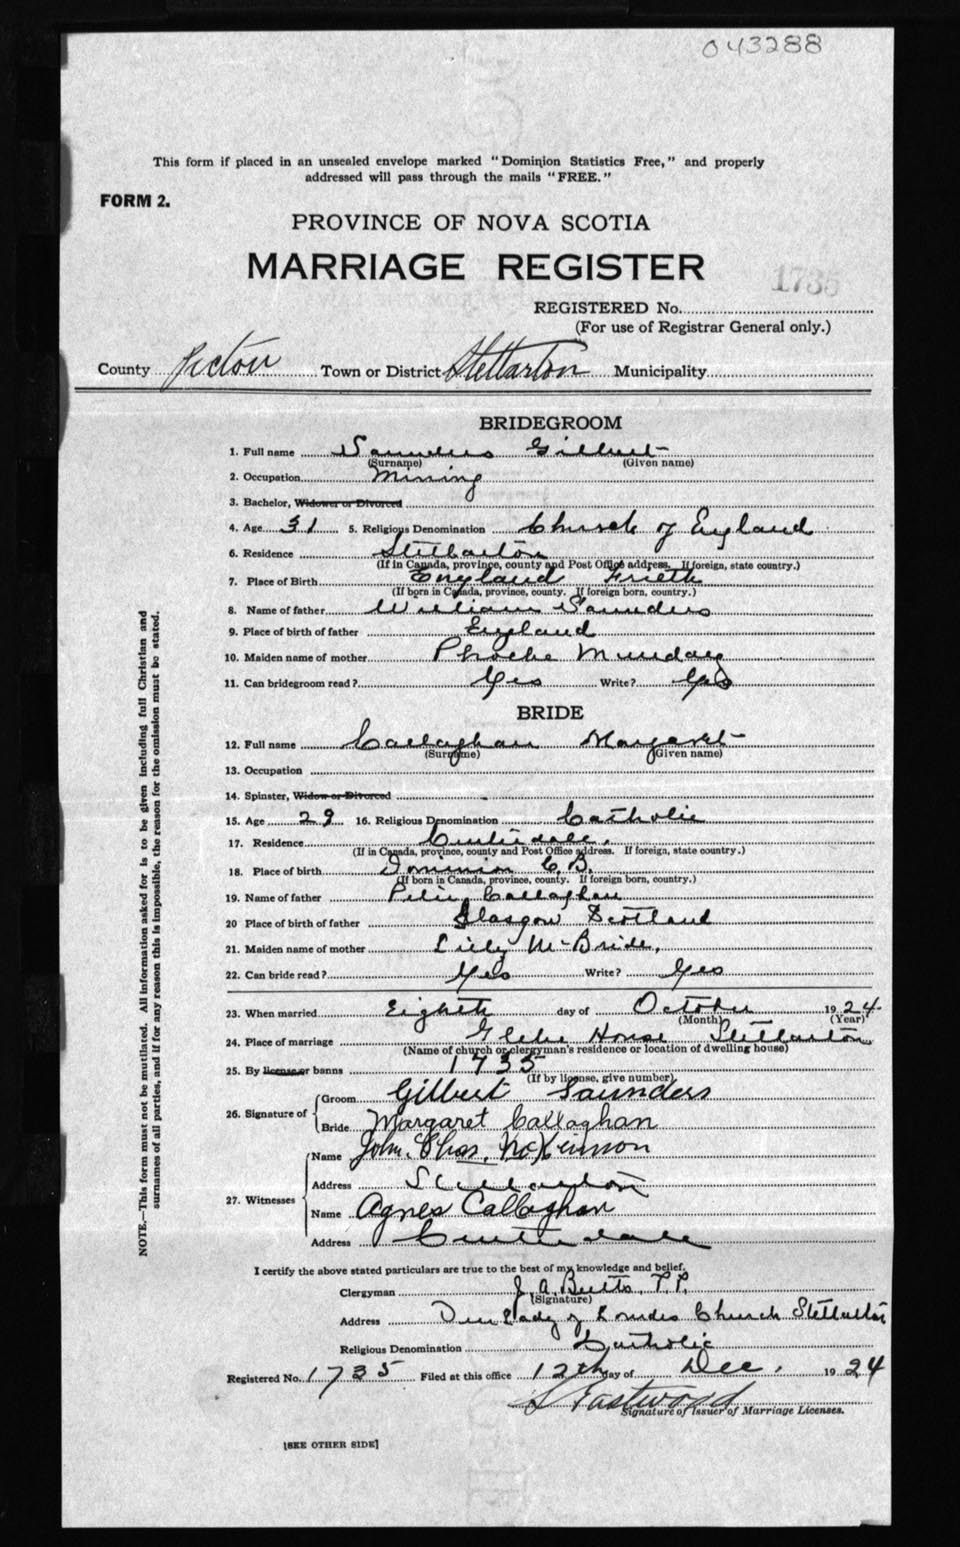 043288
This form if placed in an unsealed envelope marked "Dominion Statistics Free," and properly
addressed will pass through the mails "FREE."
FORM 2.
PROVINCE OF NOVA SCOTIA
MARRIAGE REGISTER
1735
REGISTERED No.
(For use of Registrar General only.)
County Pictou Town or District Stellarton Municipality
BRIDEGROOM
1. Full name Saunders Gilbert
(Surname) (Given name)
2. Occupation Mining
3. Bachelor, Widower or Divorced
4. Age 31 5. Religious Denomination Church of England
6. Residence Stellarton
(If in Canada, province, county and Post Office address. If foreign, state country.)
7. Place of Birth England Frieth
(If born in Canada, province, county. If foreign born, country.)
8. Name of father William Saunders
9. Place of birth of father England
10. Maiden name of mother Phoebe Munday
11. Can bridegroom read? Yes Write? Yes
BRIDE
12. Full name Callaghan Margaret
(Surname) (Given name)
13. Occupation
14. Spinster, Widow or Divorced
15. Age 29 16. Religious Denomination Catholic
17. Residence
(If in Canada, province, county and Post Office address. If foreign, state country.)
18. Place of birth Dominion C.B.
(If born in Canada, province, county. If foreign born, country.)
19. Name of father Peter Callaghan
20 Place of birth of father Glasgow Scotland
21. Maiden name of mother McBride,
22. Can bride read? Yes Write? Yes
23. When married Eighth day of October 1924
(Month) (Year)
24. Place of marriage Glebe House Stellarton
(Name of church or clergyman's residence or location of dwelling house)
25. By license or banns 1735
(If by license, give number)
26. Signature of
Groom Gilbert Saunders
Bride Margaret Callaghan
27. Witnesses
Name John. Chas. McKinnon
Address Stellarton
Name Agnes Callaghan
Address
I certify the above stated particulars are true to the best of my knowledge and belief.
Clergyman J. A. Butts P.P.
(Signature)
Address Our Lady of Lourdes Church Stellarton
Religious Denomination Catholic
Registered No. 1735 Filed at this office 12th day of Dec. 1924
Eastwood
Signature of Issuer of Marriage Licenses.
[SEE OTHER SIDE]
NOTE.—This form must not be mutilated. All information asked for is to be given including full Christian and
surnames of all parties, and if for any reason this is impossible, the reason for the omission must be stated.